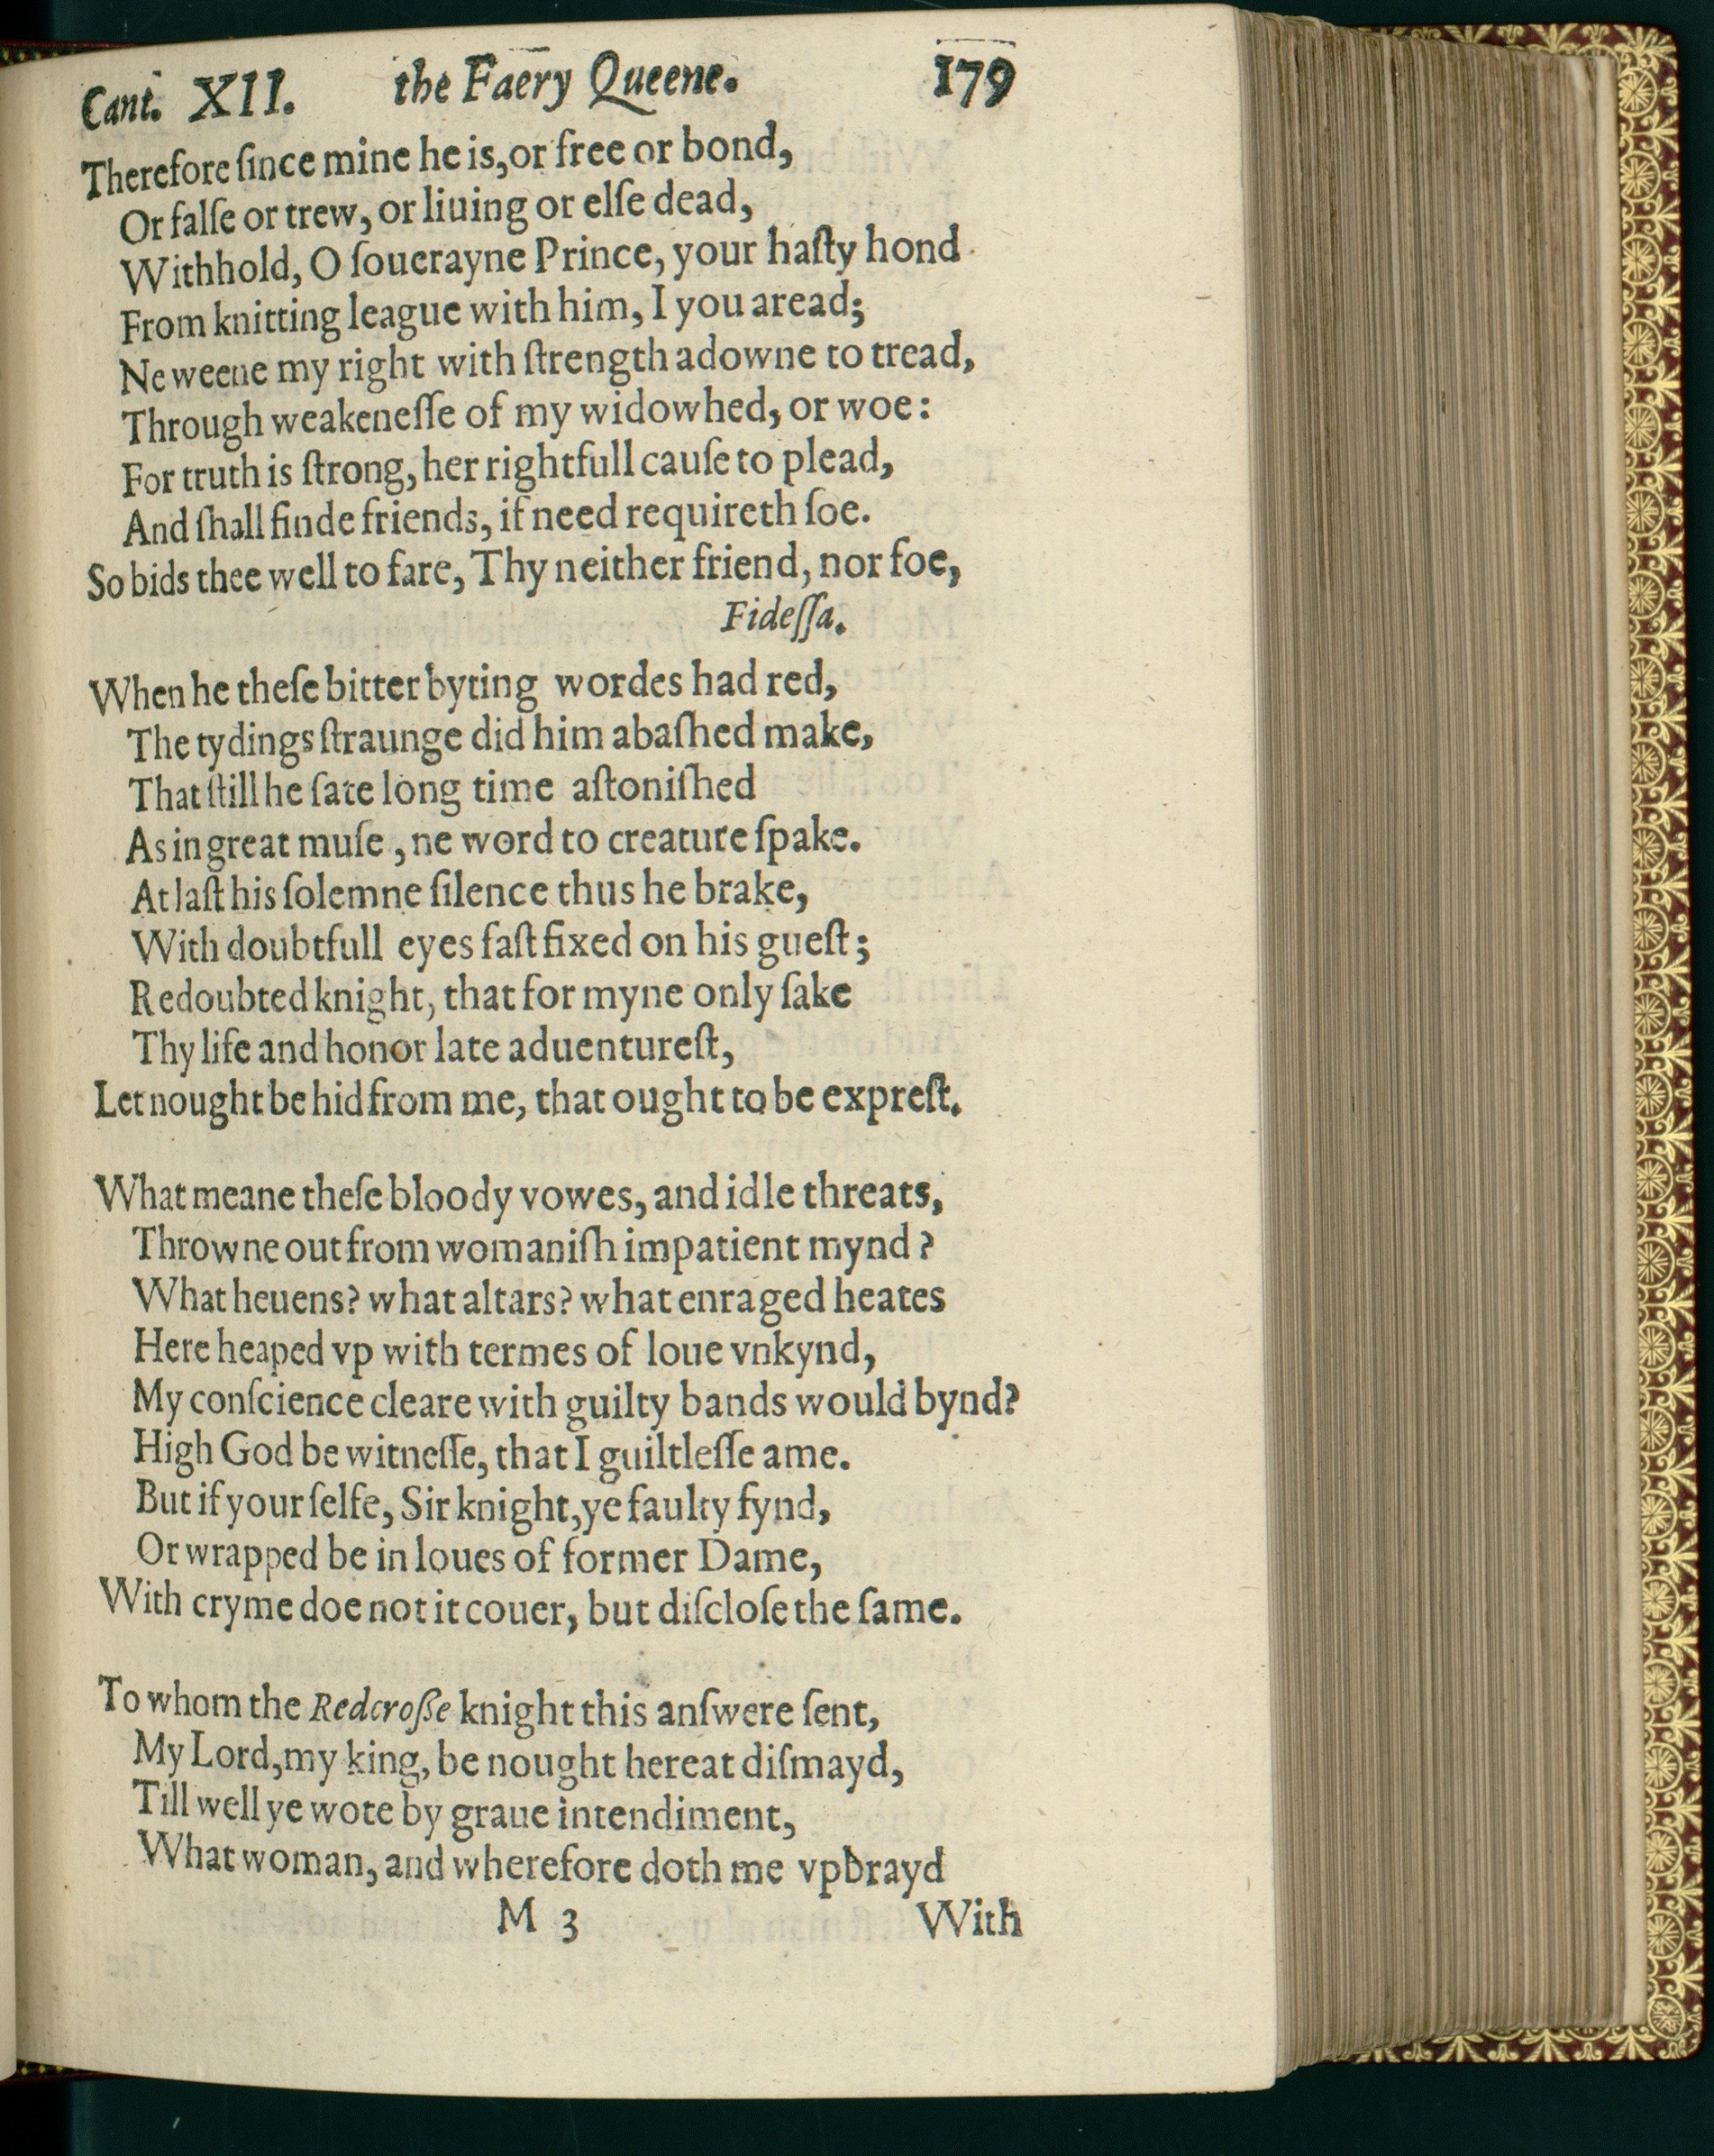 Cant. XII. the Faery Queene. 179
Therefore ſince mine he is, or free or bond,
Or falſe or trew, or liuing or elſe dead,
Withhold, O ſouerayne Prince, your haſty hond
From knitting league with him, I you aread;
Ne weene my right with ſtrength adowne to tread,
Through weakeneſſe of my widowhed, or woe:
For truth is ſtrong, her rightfull cauſe to plead,
And ſhall finde friends, if need requireth ſoe.
So bids thee well to fare, Thy neither friend, nor foe,
Fideſſa.
When he theſe bitter byting wordes had red,
The tydings ſtraunge did him abaſhed make,
That ſtill he ſate long time aſtoniſhed
As in great muſe, ne word to creature ſpake.
At laſt his ſolemne ſilence thus he brake,
With doubtfull eyes faſt fixed on his gueſt;
Redoubted knight, that for myne only ſake
Thy life and honor late aduentureſt,
Let nought be hid from me, that ought to be expreſt.
What meane theſe bloody vowes, and idle threats,
Throwne out from womaniſh impatient mynd?
What heuens? what altars? what enraged heates
Here heaped vp with termes of loue vnkynd,
My conſcience cleare with guilty bands would bynd?
High God be witneſſe, that I guiltleſſe ame.
But if your ſelfe, Sir knight, ye faulty fynd,
Or wrapped be in loues of former Dame,
With cryme doe not it couer, but diſcloſe the ſame.
To whom the Redcroße knight this anſwere ſent,
My Lord, my king, be nought hereat diſmayd,
Till well ye wote by graue intendiment,
What woman, and wherefore doth me vpbrayd
M 3 With